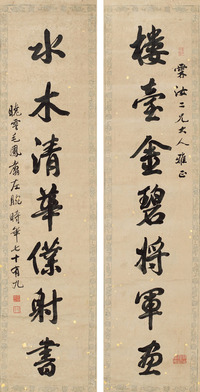 霖汝二兄大人雅正
樓臺金碧將軍畫
水木清華僕射書
晚雲毛鳳翥左腕時年七十有九